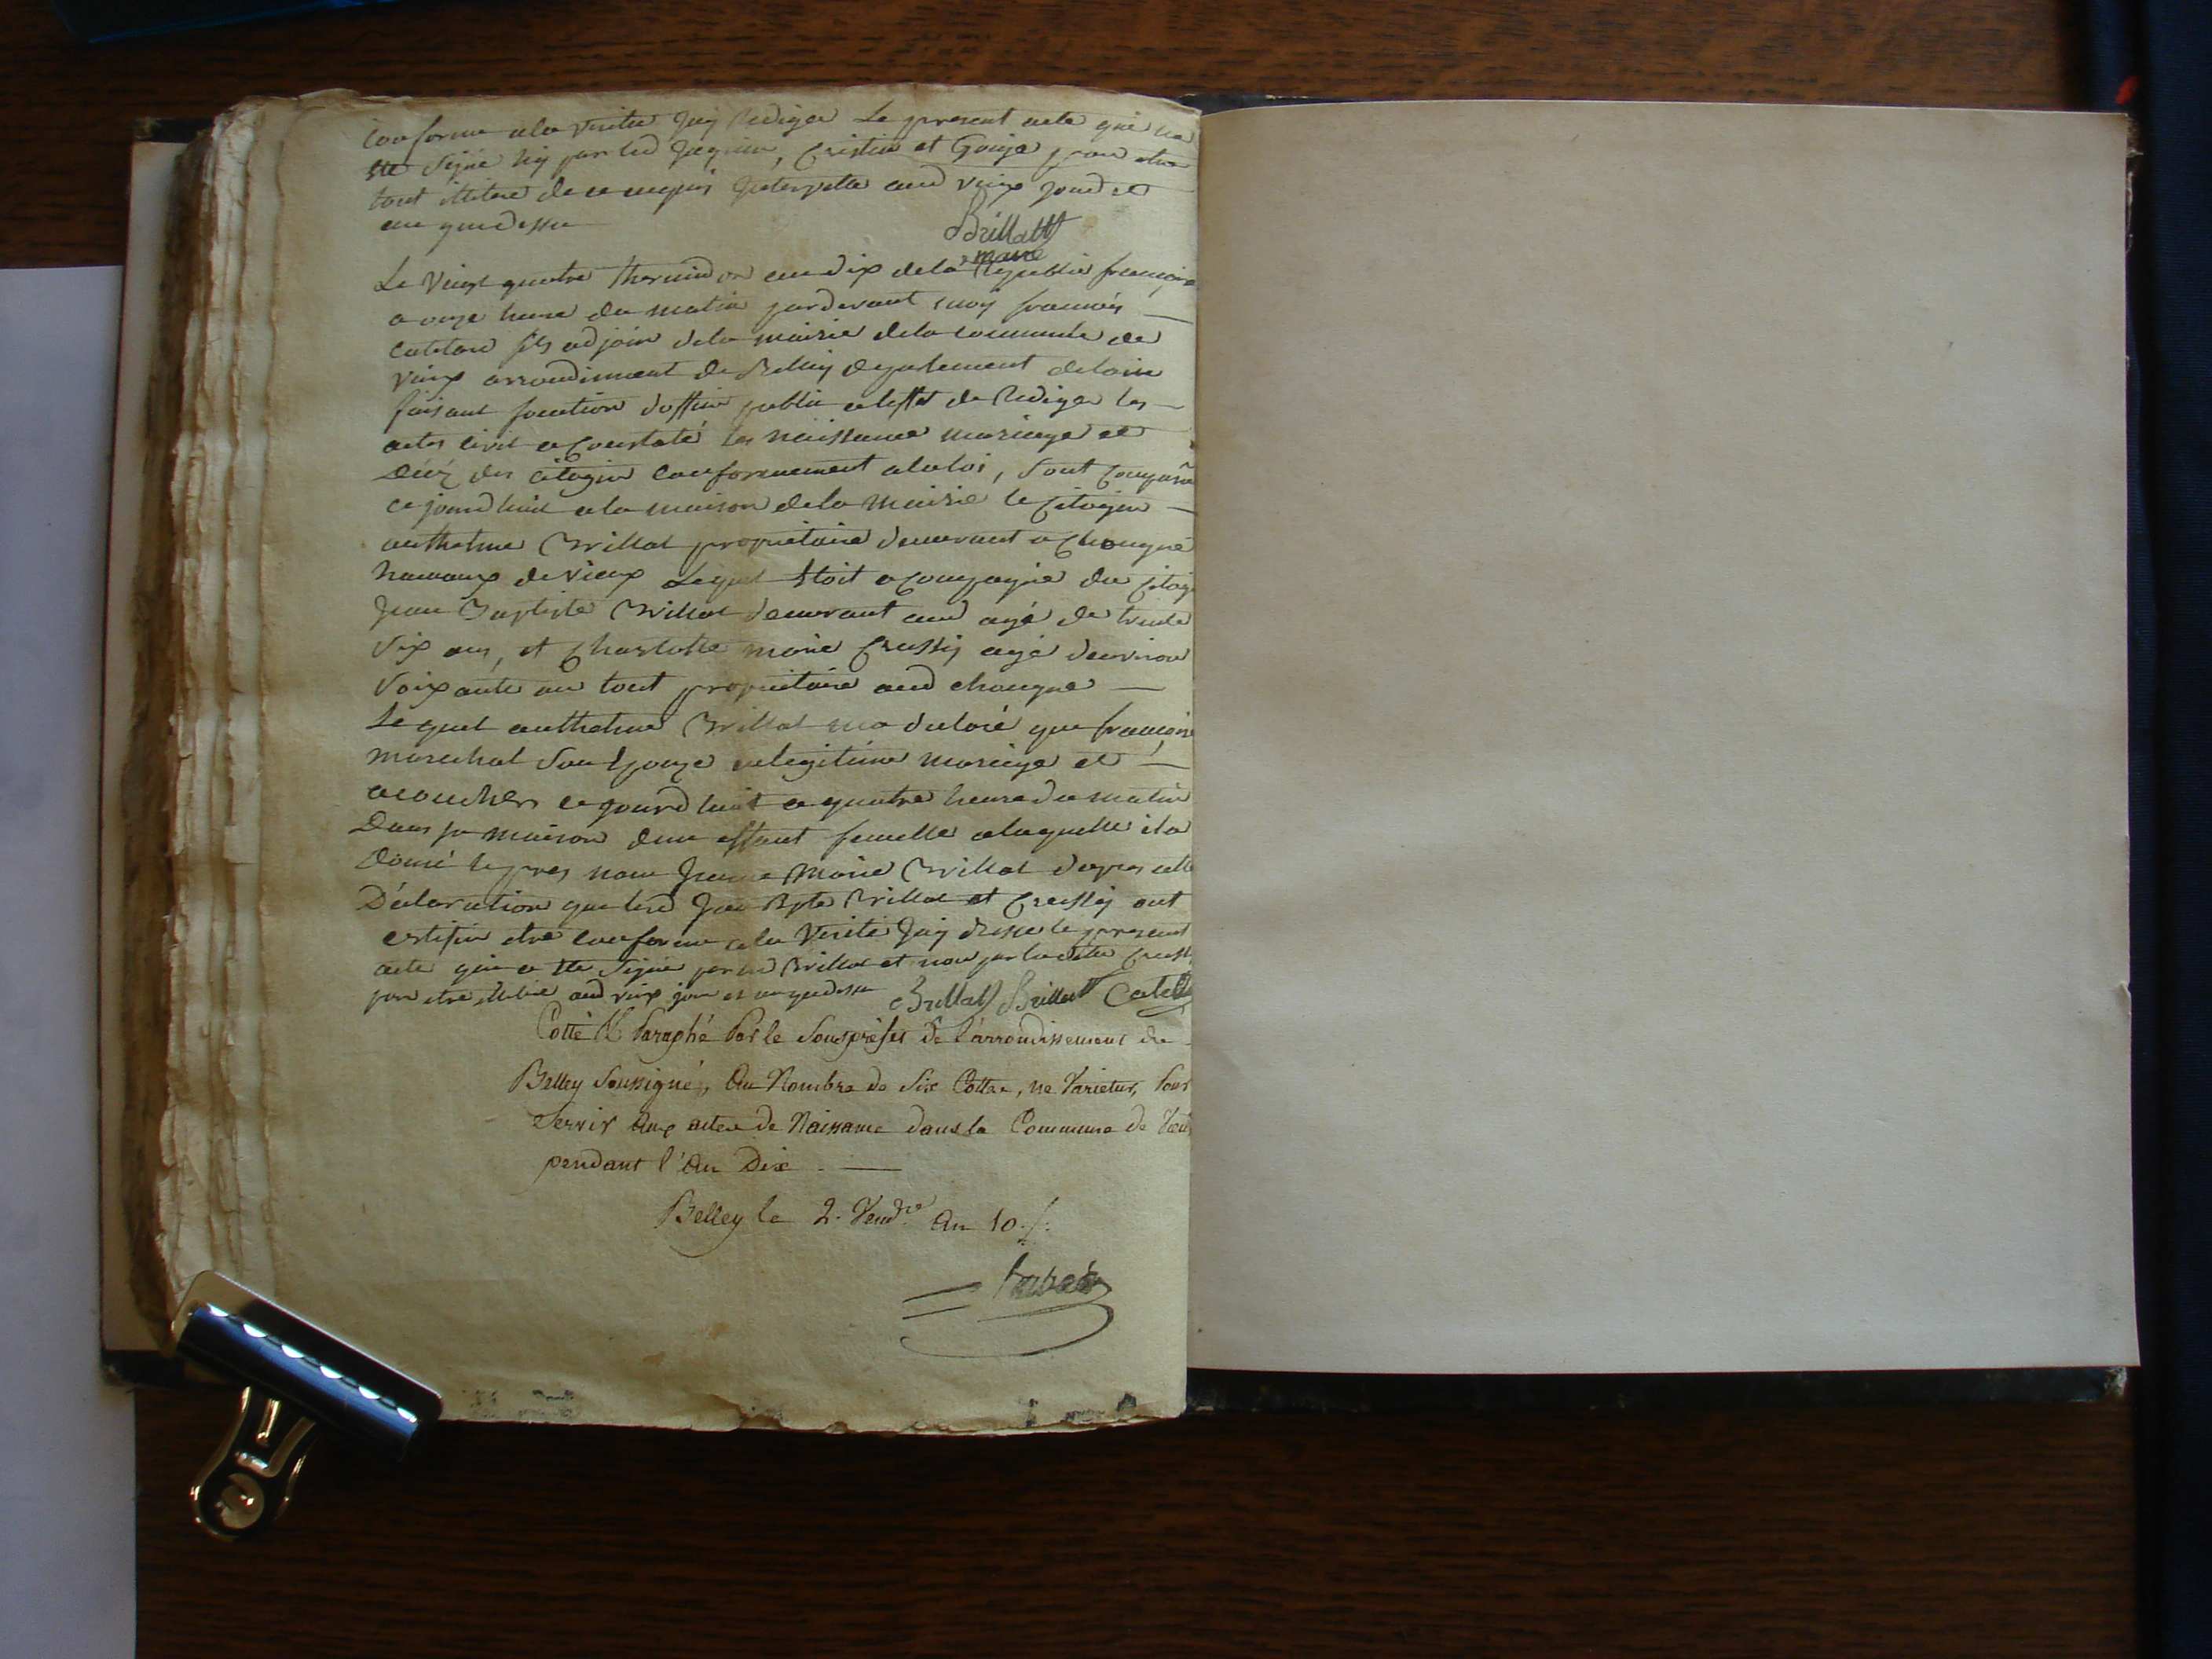 conforme ala verite jay rediger Le present acte qui na
ete signe ny par led , Cristin et Gonje pour etre
tout illitere de ce enquis Interpelle aud vieux jour et
an que dessu
Brillatt
maire
Le vingt quatre thermidor an dix dela Republic françoise
a onze heure du matin pardevant moy francois
catelan fils adjoin dela mairie dela commune de
vieux arrondiment de Belley departement delain
faisant fonction doffier public aleffet de rediger les
actes civil a constaté les naissance mariage et
décé des citoyen conformement alaloi, sont comparu
ce jourd huit ala maison dela mairie le citoyen
anthelme Brillat propriétaire demeurant a Chongne
hameaux de vieux Lequel etoit acompagné du citoy
Jean Baptiste Brillat demeurant aud agé de trente
six ans, et Charlotte marie Crussy agé denviron
soixante an tout propriétaire aud chongne
Le quel anthelme Brillat ma declaré que françoise
marechal son Epouze en legitime mariage et
acoucher ce jourd huit a quatre heure du matin
Dans sa maison dun effant femelle alaquelle il a
donné le pres nom Jeanne Marie Brillat dapres cette
Déclaration que led Jean Bpte Brillat et Crussy ont
certifier etre conforme ala verité jay dressé le present
acte qui a ete signé par led Brillat et non par ladite Cruss
pour etre illitere aud vieux jour et an que dessu Brillat Brillatt Catel
Cotté & Paraphé Par le Sousprefet de L'arrondissement de
Belley Soussigné, Au Nombre de Six Cottes, ne Varietur, Pour
Servir Aux actes de Naissance dans la Commune de Vieu
pendant l'An Dix
Belley le 2. Vend.re An 10.